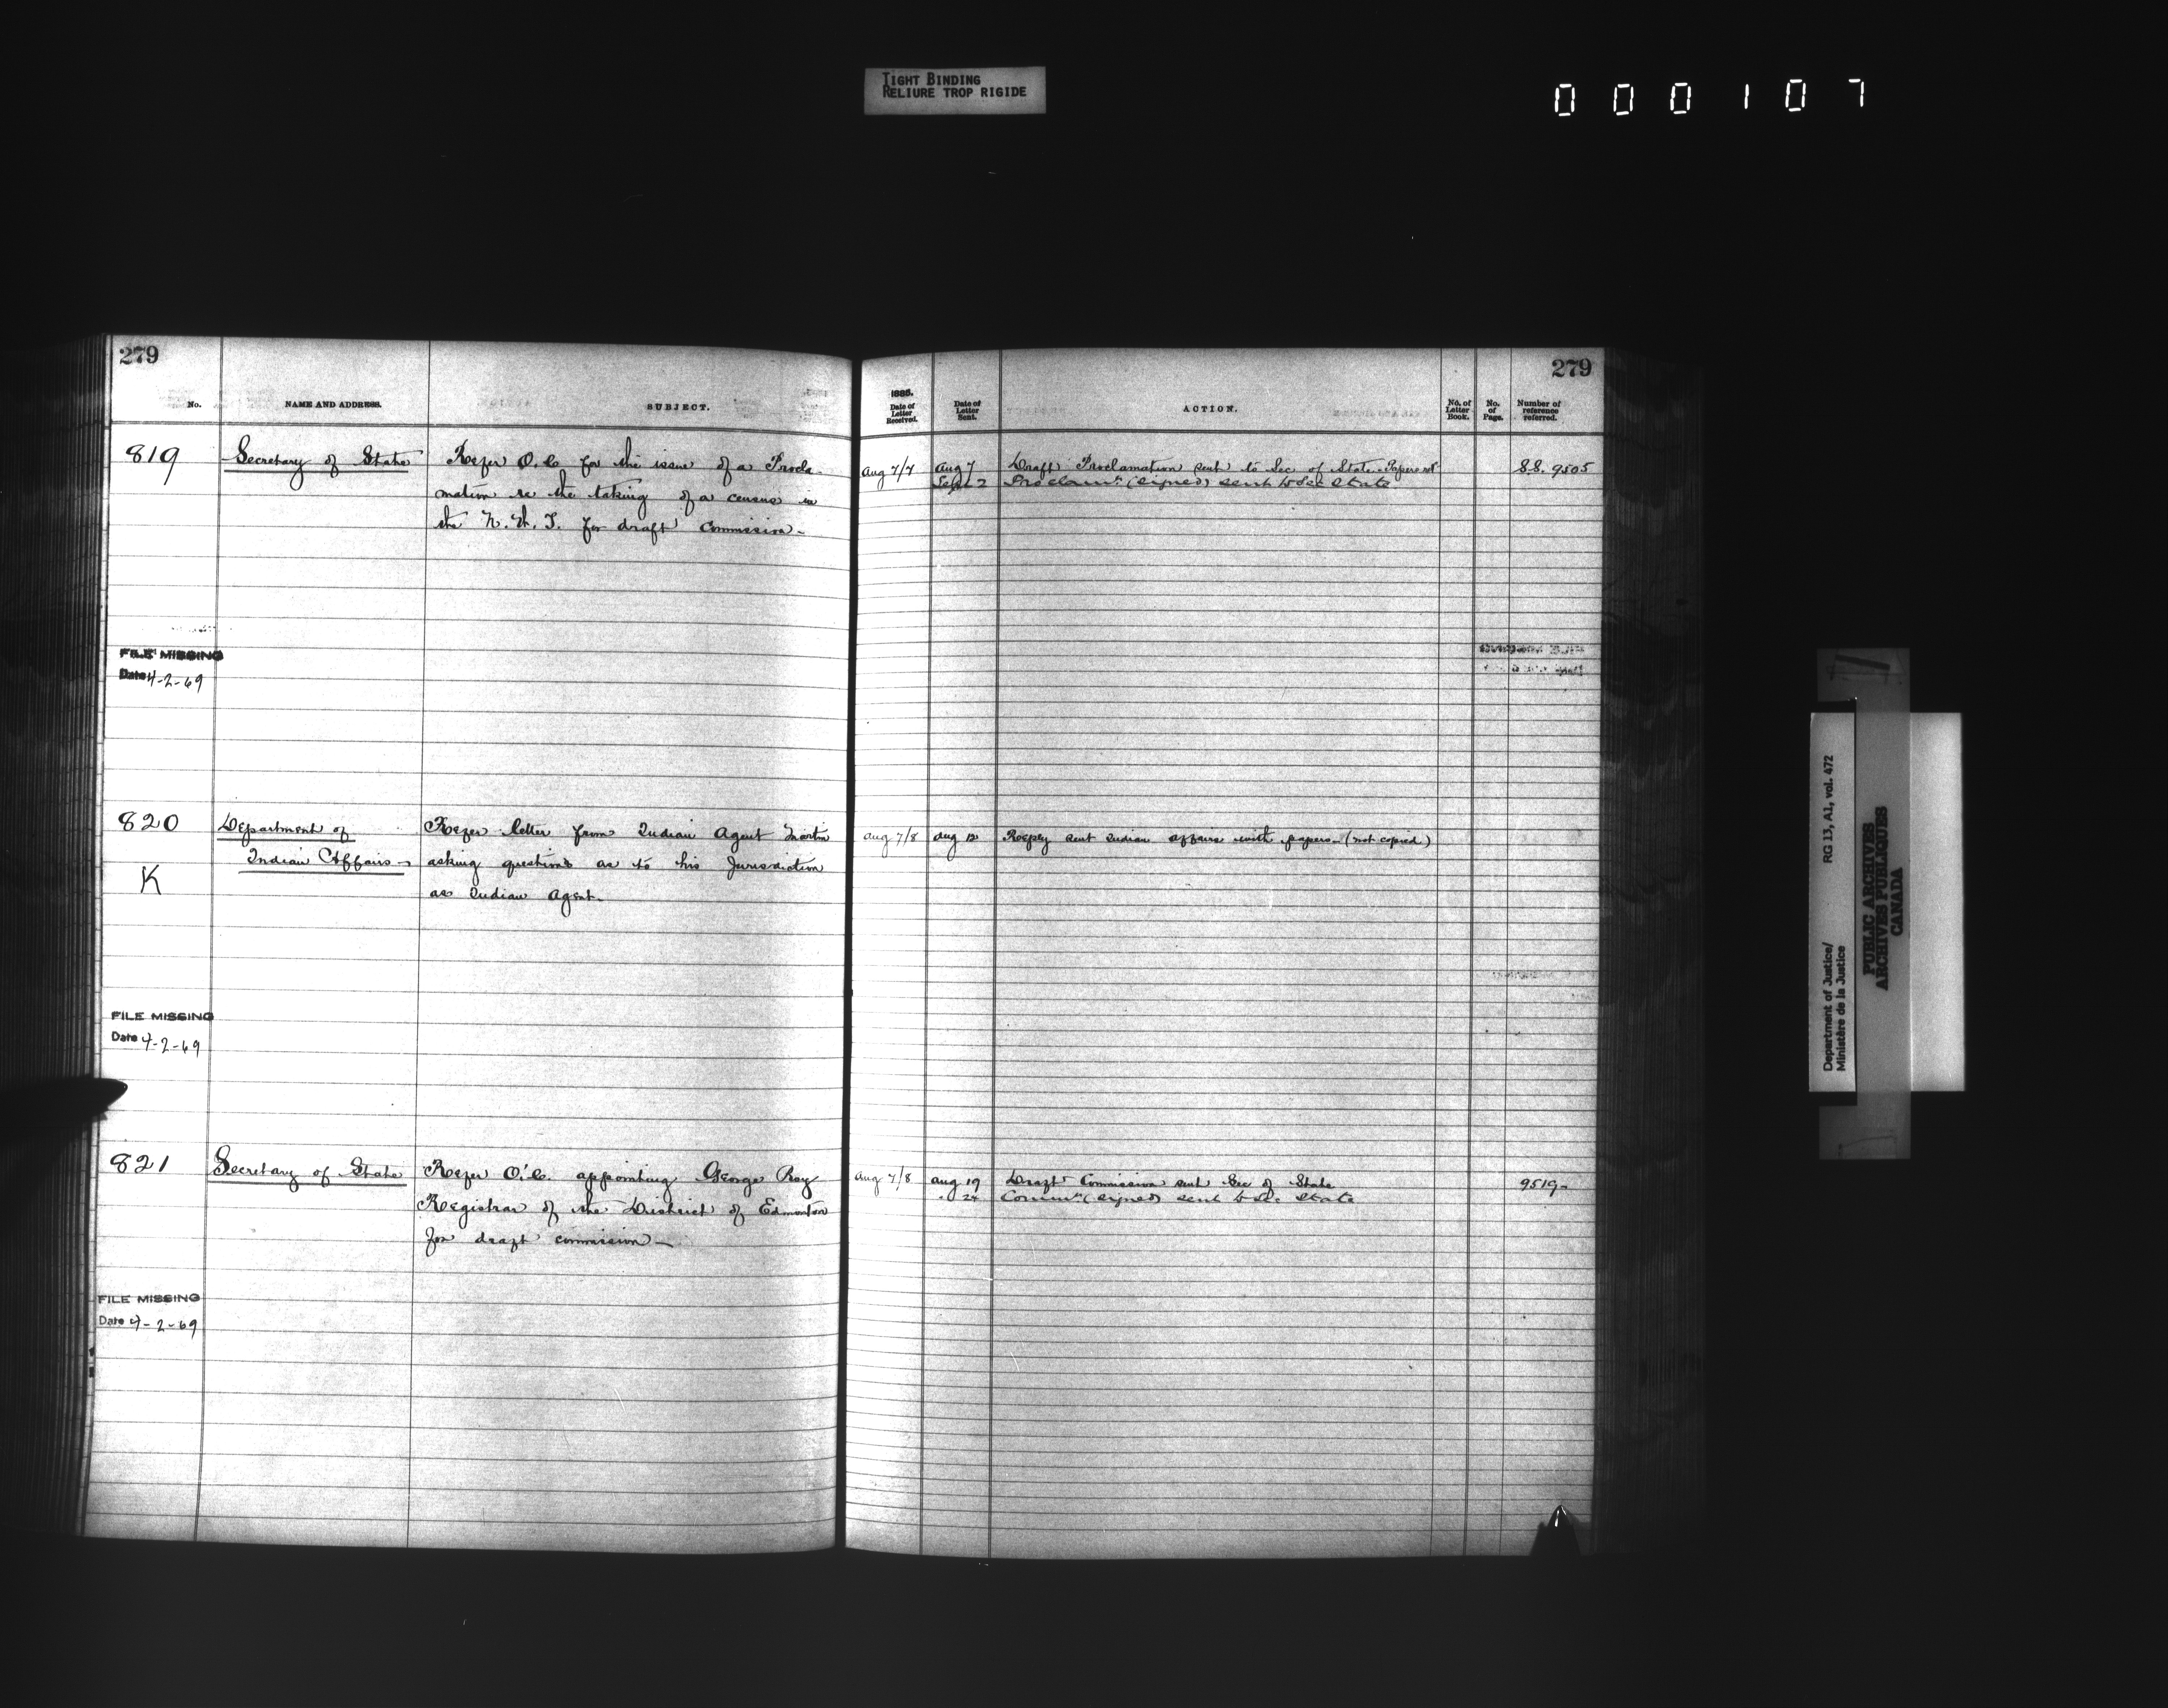 TIGHT BINDING
RELIURE TROP RIGIDE
000107
279
No.
NAME AND ADDRESS.
SUBJECT.
819
Secretary of State
Refer O.C. for the issue of a Procla-
mation re the taking of a census in
the N.W.T. for draft Commission-
FILE MISSING
Date 4-2-69
820
K
Department of
Indian Affairs-
Refer letter from Indian Agent Martin
asking questions as to his Jurisdiction
as Indian Agent-
FILE MISSING
Date 4-2-69
821
Secretary of State
Refer O.C. appointing George Roy
Registrar of the District of Edmonton
for draft commission-
FILE MISSING
Date 4-2-69
279
1885.
Date of
Letter
Received.
Date of
Letter
Sent.
ACTION.
No. of
Letter
Book.
No.
of
Page.
Number of
reference
referred.
Aug 7/7
Aug 7
Draft Proclamation sent to Sec of State. Papers ret
S.S. 9505
Sept 2
Proclamn (signed) sent to Sec State
Aug 7/8
Aug 12
Reply sent Indian Affairs with papers- (not copied)
Aug 7/8
Aug 19
Draft Commission sent Sec of State
9519-
" 24
Commn (signed) sent to Sec State
Department of Justice/
Ministère de la Justice
RG 13, A1, vol. 472
PUBLIC ARCHIVES
ARCHIVES PUBLIQUES
CANADA